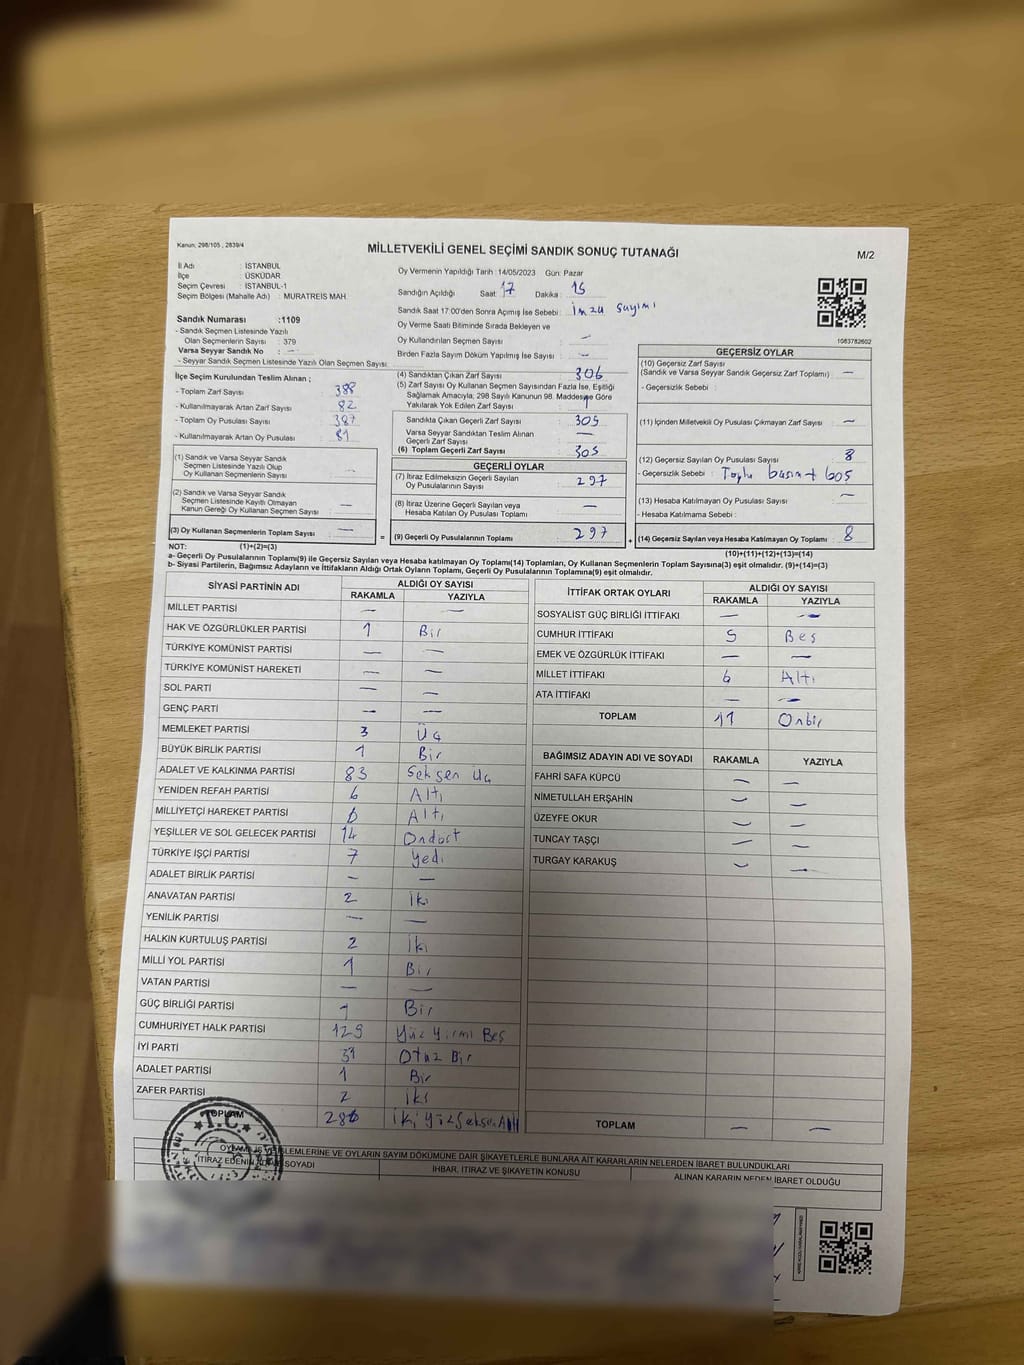 Kanun: 298/105 , 2839/4
MİLLETVEKİLİ GENEL SEÇİMİ SANDIK SONUÇ TUTANAĞI
M/2
İl Adı : İSTANBUL
İlçe : ÜSKÜDAR
Seçim Çevresi : İSTANBUL-1
Seçim Bölgesi (Mahalle Adı) : MURATREİS MAH
Sandık Numarası :1109
- Sandık Seçmen Listesinde Yazılı
Olan Seçmenlerin Sayısı : 379
Varsa Seyyar Sandık No : —
- Seyyar Sandık Seçmen Listesinde Yazılı Olan Seçmen Sayısı
İlçe Seçim Kurulundan Teslim Alınan ;
- Toplam Zarf Sayısı : 388
- Kullanılmayarak Artan Zarf Sayısı : 82
- Toplam Oy Pusulası Sayısı : 387
- Kullanılmayarak Artan Oy Pusulası : 81
(1) Sandık ve Varsa Seyyar Sandık
Seçmen Listesinde Yazılı Olup
Oy Kullanan Seçmenlerin Sayısı :
(2) Sandık ve Varsa Seyyar Sandık
Seçmen Listesinde Kayıtlı Olmayan
Kanun Gereği Oy Kullanan Seçmen Sayısı : —
(3) Oy Kullanan Seçmenlerin Toplam Sayısı : —
(1)+(2)=(3)
Oy Vermenin Yapıldığı Tarih :14/05/2023 Gün: Pazar
Sandığın Açıldığı Saat : 17 Dakika : 15
Sandık Saat 17:00'den Sonra Açımış İse Sebebi : İmza sayımı
Oy Verme Saati Bitiminde Sırada Bekleyen ve
Oy Kullandırılan Seçmen Sayısı : —
Birden Fazla Sayım Döküm Yapılmış İse Sayısı : —
(4) Sandıktan Çıkan Zarf Sayısı : 306
(5) Zarf Sayısı Oy Kullanan Seçmen Sayısından Fazla İse, Eşitliği
Sağlamak Amacıyla, 298 Sayılı Kanunun 98. Maddesine Göre
Yakılarak Yok Edilen Zarf Sayısı : 1
Sandıkta Çıkan Geçerli Zarf Sayısı : 305
Varsa Seyyar Sandıktan Teslim Alınan
Geçerli Zarf Sayısı : —
(6) Toplam Geçerli Zarf Sayısı : 305
GEÇERLİ OYLAR
(7) İtiraz Edilmeksizin Geçerli Sayılan
Oy Pusulalarının Sayısı : 297
(8) İtiraz Üzerine Geçerli Sayılan veya
Hesaba Katılan Oy Pusulası Toplamı : —
= (9) Geçerli Oy Pusulası Toplamı : 297
1083782602
GEÇERSİZ OYLAR
(10) Geçersiz Zarf Sayısı
(Sandık ve Varsa Seyyar Sandık Geçersiz Zarf Toplamı) : —
- Geçersizlik Sebebi :
(11) İçinden Milletvekili Oy Pusulası Çıkmayan Zarf Sayısı : —
(12) Geçersiz Sayılan Oy Pusulası Sayısı : 8
- Geçersizlik Sebebi : Toplu basım + boş
(13) Hesaba Katılmayan Oy Pusulası Sayısı : —
- Hesaba Katılmama Sebebi :
+ (14) Geçersiz Sayılan veya Hesaba Katılmayan Oy Toplamı : 8
(10)+(11)+(12)+(13)=(14)
NOT:
a- Geçerli Oy Pusulalarının Toplamı(9) ile Geçersiz Sayılan veya Hesaba katılmayan Oy Toplamı(14) Toplamları, Oy Kullanan Seçmenlerin Toplam Sayısına(3) eşit olmalıdır. (9)+(14)=(3)
b- Siyasi Partilerin, Bağımsız Adayların ve İttifakların Aldığı Ortak Oyların Toplamı, Geçerli Oy Pusulalarının Toplamına(9) eşit olmalıdır.
SİYASİ PARTİNİN ADI ALDIĞI OY SAYISI
RAKAMLA YAZIYLA
MİLLET PARTİSİ — —
HAK VE ÖZGÜRLÜKLER PARTİSİ 1 Bir
TÜRKİYE KOMÜNİST PARTİSİ — —
TÜRKİYE KOMÜNİST HAREKETİ — —
SOL PARTİ — —
GENÇ PARTİ — —
MEMLEKET PARTİSİ 3 Üç
BÜYÜK BİRLİK PARTİSİ 1 Bir
ADALET VE KALKINMA PARTİSİ 83 Seksen Üç
YENİDEN REFAH PARTİSİ 6 Altı
MİLLİYETÇİ HAREKET PARTİSİ 6 Altı
YEŞİLLER VE SOL GELECEK PARTİSİ 14 Ondört
TÜRKİYE İŞÇİ PARTİSİ 7 Yedi
ADALET BİRLİK PARTİSİ — —
ANAVATAN PARTİSİ 2 İki
YENİLİK PARTİSİ — —
HALKIN KURTULUŞ PARTİSİ 2 İki
MİLLİ YOL PARTİSİ 1 Bir
VATAN PARTİSİ — —
GÜÇ BİRLİĞİ PARTİSİ 1 Bir
CUMHURİYET HALK PARTİSİ 125 Yüz Yirmi Beş
İYİ PARTİ 31 Otuz Bir
ADALET PARTİSİ 1 Bir
ZAFER PARTİSİ 2 İki
TOPLAM 286 İki Yüz Seksen Altı
İTTİFAK ORTAK OYLARI ALDIĞI OY SAYISI
RAKAMLA YAZIYLA
SOSYALİST GÜÇ BİRLİĞİ İTTİFAKI — —
CUMHUR İTTİFAKI 5 Beş
EMEK VE ÖZGÜRLÜK İTTİFAKI — —
MİLLET İTTİFAKI 6 Altı
ATA İTTİFAKI — —
TOPLAM 11 Onbir
BAĞIMSIZ ADAYIN ADI VE SOYADI RAKAMLA YAZIYLA
FAHRİ SAFA KÜPCÜ — —
NİMETULLAH ERŞAHİN — —
ÜZEYFE OKUR — —
TUNCAY TAŞÇI — —
TURGAY KARAKUŞ — —
TOPLAM — —
T.C.
İŞLEMLERİNE VE OYLARIN SAYIM DÖKÜMÜNE DAİR ŞİKAYETLERLE BUNLARA AİT KARARLARIN NELERDEN İBARET BULUNDUKLARI
İTİRAZ EDENİN SOYADI
İHBAR, İTİRAZ VE ŞİKAYETİN KONUSU
ALINAN KARARIN NEDEN İBARET OLDUĞU